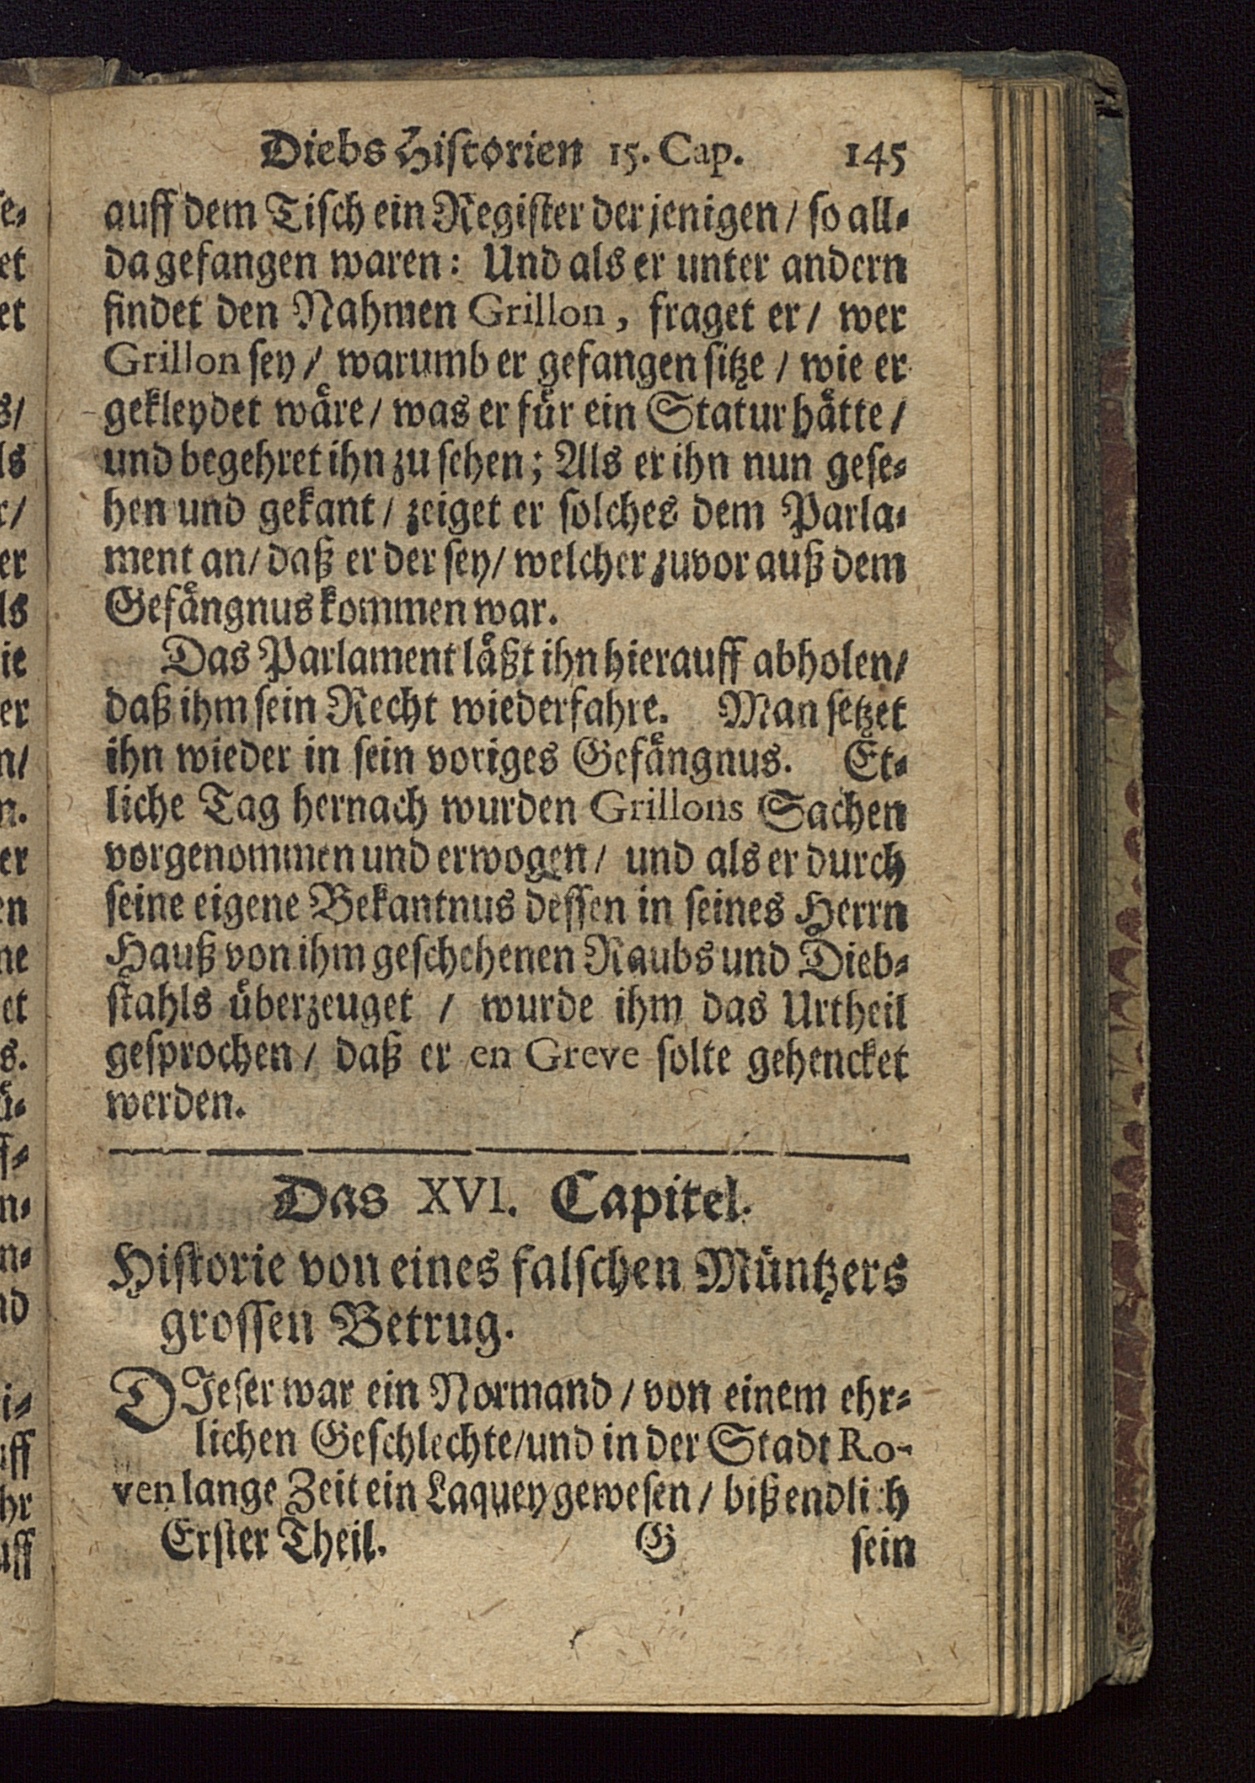 Diebs Historien 15. Cap. 145
auff dem Tisch ein Register der jenigen / so all-
da gefangen waren: Und als er unter andern
findet den Nahmen Grillon, fraget er / wer
Grillon sey / warumb er gefangen sitze / wie er
gekleydet wäre / was er für ein Statur hätte /
und begehret ihn zu sehen; Als er ihn nun gese-
hen und gekant / zeiget er solches dem Parla-
ment an / daß er der sey / welcher zuvor auß dem
Gefängnus kommen war.
Das Parlament läßt ihn hierauff abholen /
daß ihm sein Recht wiederfahre. Man setzet
ihn wieder in sein voriges Gefängnus. Et-
liche Tag hernach wurden Grillons Sachen
vorgenommen und erwogen / und als er durch
seine eigene Bekantnus dessen in seines Herrn
Hauß von ihm geschehenen Raubs und Dieb-
stahls überzeuget / wurde ihm das Urtheil
gesprochen / daß er en Greve solte gehencket
werden.
Das XVI. Capitel.
Historie von eines falschen Müntzers
grossen Betrug.
DIeser war ein Normand / von einem ehr-
lichen Geschlechte / und in der Stadt Ro-
ven lange Zeit ein Laquey gewesen / biß endlich
Erster Theil. G sein